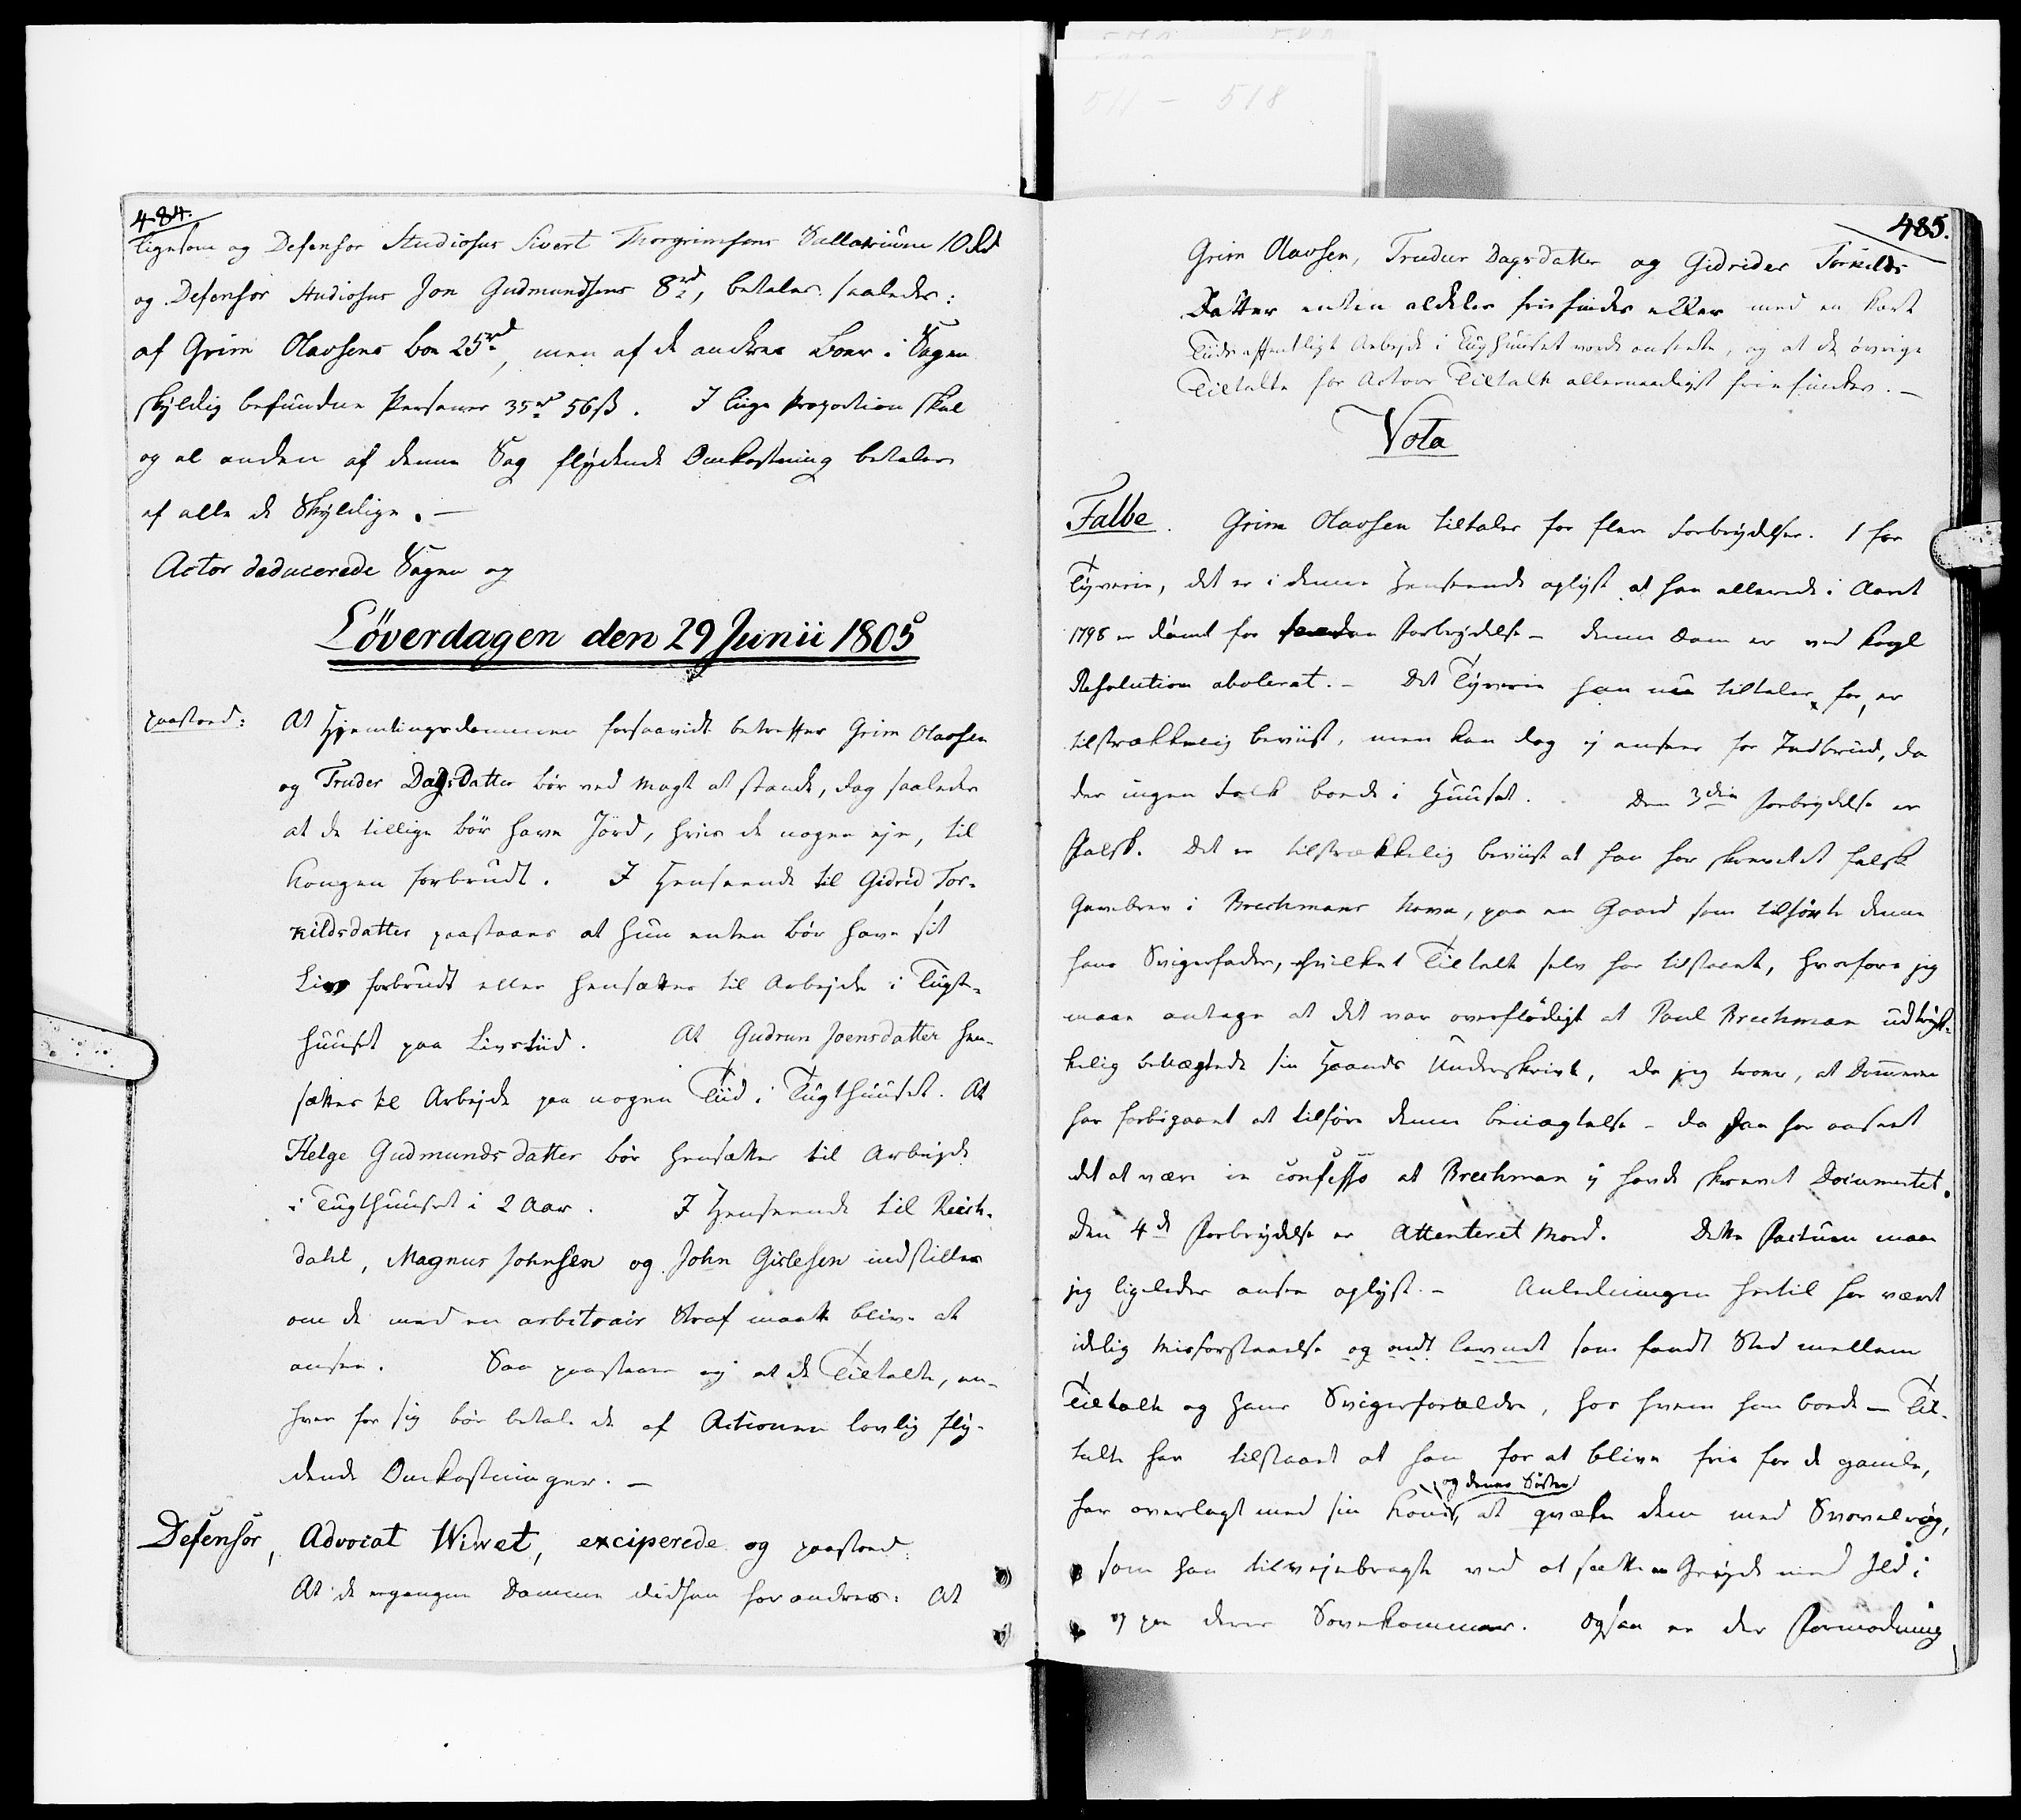 484.
ligesom og Defensor Studiosus Sivert Thorgrimsens Sallarium 10 Rd
og Defensor Studiosus Jon Gudmundsens 8 rd, betales saaledes:
af Grim Olavsens boe 25 rd, men af de andres Boer i Sagen
skyldig befundne Personer 35 rd 56 ß. I liige Proportion skal
og al anden af denne Sag flydende Omkostning betales
af alle de Skyldige. —
Actor deducerede Sagen og
Løverdagen den 29 Junii 1805
paastod: At Hjemtingsdommen forsaavidt betreffer Grim Olavsen
og Truder Dagsdatter bør ved Magt at stande, dog saaledes
at de tillige bør have Jord, hvis de nogen eje, til
Kongen forbrudt. I Henseende til Gidrid Tor-
kildsdatter paastaaes at hun enten bør have sit
Liv forbrudt eller hensættes til Arbejde i Tugt-
huuset paa Livstiid. At Gudrun Joensdatter hen-
sættes til Arbejde paa nogen Tiid i Tugthuuset. At
Helge Gudmundsdatter bør hensættes til Arbeyde
i Tugthuuset i 2 Aar. I Henseende til Reich-
dahl, Magnus Johnsen og John Gislesen indstilles
om de med en arbitrair Straf maatte blive at
ansee. Saa paastaaes og at de Tiltalte, en-
hver for sig bør betale de af Actionen lovlig fly-
dende Omkostninger. —
Defensor, Advocat Wivet, exciperede og paastod:
At de ergangne Domme didhen forandres: At
485.
Grim Olavsen, Trudur Dagsdatter og Gidrider Torkilds
Datter enten aldeles friefindes eller med en kort
Tiids offentligt Arbejde i Tugthuuset vorde ansete, og at de øvrige
Tiltalte for Actors Tiltale allernaadigst friefindes. —
Vota
Falbe. Grim Olavsen tiltales for flere Forbrydelser. 1 for
Tyverie, det er i denne Henseende oplyst at han allerede i Aaret
1798 er dømt for saadan Forbrydelse — denne Dom er ved Kongl
Resolution aboleret. — Det Tyverie han nu tiltales for, er
tilstrækkelig beviist, men kan dog ej ansees for Indbrud, da
der ingen Folk boede i Huuset. Den 3die Forbrydelse er
Falsk. Det er tilstrækkelig beviist at han har skrevet et falsk
Gavebrev i Brechmans Navn, paa en Gaard som tilhørte denne
hans Svigerfader, hvilket Tiltalte selv har tilstaaet, hvorfore jeg
maae antage at det var overflødigt at Poul Brechman udtryk-
kelig benægtede sin Haands Underskrivt, da jeg troer, at Dommeren
har forbigaaet at tilføre denne benægtelse — da han har anseet
det at være in confesso at Brechman ej havde skrevet Documentet.
Den 4de Forbrydelse er Attenteret Mord. Dette Factum maae
jeg ligeledes ansee oplyst. — Anledningen hertil har været
idelig Misforstaaelse og ondt Levnet som fandt Sted mellem
Tiltalte og hans Svigerforældre, hos hvem han boede — Til-
talte har tilstaaet at han for at blive frie for de gamle,
har overlagt med sin Kone, og dennes Søster at qvæle dem med Svovelrøg,
som han tilvejebragte ved at sætte en Gryde med Ild i
og paa deres Sovekammer. Ogsaa er der Formodning